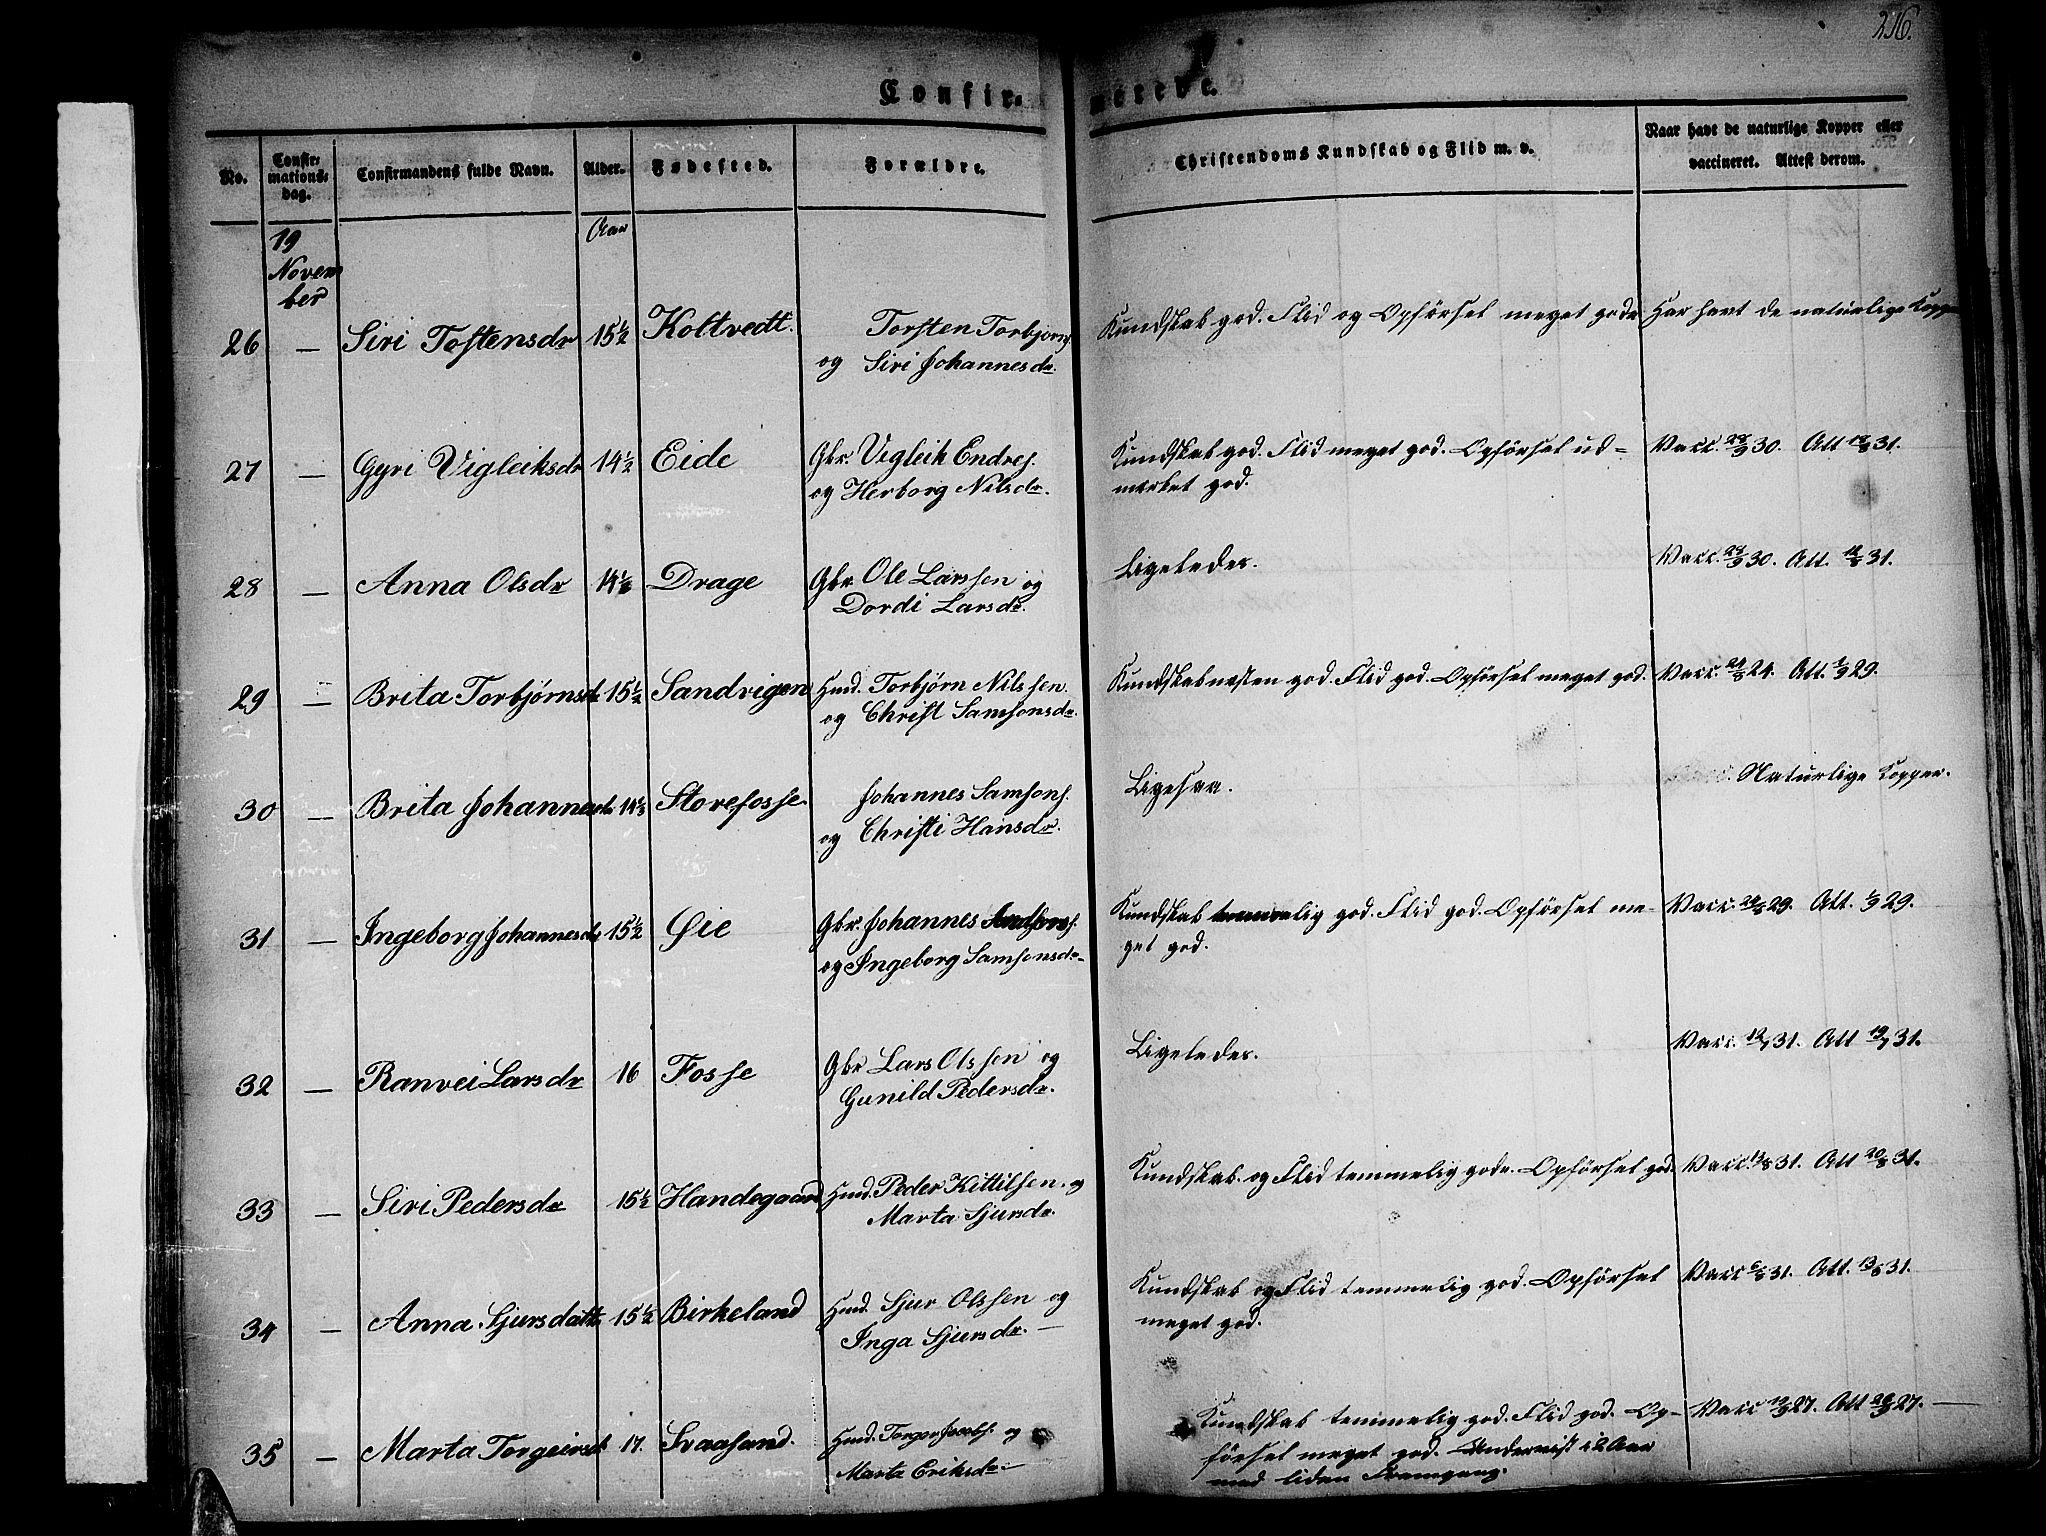 216.
Confir- merede.
No.
Confir-
mations-
dag.
Confirmandens fulde Navn.
Alder.
Fødested.
Forældre.
Christendoms Kundskab og Flid m. v.
Naar havt de naturlige Kopper eller
vaccineret. Attest derom.
19
Novem
ber
Aar
26 — Siri Tostensdr 15½ Koltvedt. Torsten Torbjörns. Kundskab god. Flid og Opförsel meget gode Har havt de naturlige Kopper
og Siri Johannesdr.
27 — Gyri Vigleiksdr 14½ Eide Gbr. Vigleik Endres. Kundskab god. Flid meget god. Opförsel ud= Vacc. 28/9 30. Att 18/8 31.
og Herborg Nilsdr. mærket god.
28 — Anna Olsdr 14½ Drage Gbr Ole Larssen og Ligeledes. Vacc. 29 30. Att. 31.
Dordi Larsdr.
29 — Brita Torbjørnsdr 15½ Sandvigen Hmd. Torbjørn Nilssen. Kundskab næsten god. Flid god. Opförsel meget god. Vacc. 24/8 24. Att. 29.
og Christ Samsonsdr.
30 — Brita Johannesdr 14½ Storefosse. Johannes Samsons. Ligesaa. Naturlige Kopper.
og Christi Hansdr.
31 — Ingeborg Johannesdr 15½ Øie Gbr. Johannes Kundskab temmelig god. Flid god. Opförsel me- Vacc. 29. Att. 29.
og Ingeborg Samsonsdr get god.
32 — Ranvei Larsdr 16 Fosse Gbr Lars Olssen og Ligeledes. Vacc. 12/7 31. Att 19/7 31.
Gunild Pedersdr.
33 — Siri Pedersdr 15½ Handegaard Hmd. Peder Kittilsen. og Kundskab og Flid temmelig gode. Opförsel god. Vacc. 13/8 31. Att 20/8 31.
Marta Sjursdr.
34 — Anna Sjursdattr 15½ Birkeland Hmd. Sjur Olssen og Kundskab og Flid temmelig god. Opförsel Vacc 6/8 31. Att. 13/8 31.
Inga Sjursdr. — meget god.
35 — Marta Torgeirsd 17. Svaasand. Hmd. Torger Jacobs. og Kundskab temmelig god. Flid god. Op- Vacc 19/9 27. Att 26/9 27. —
Marta Eriksdr. — försel meget god. Undervist i 2 Aar
med liden Fremgang.